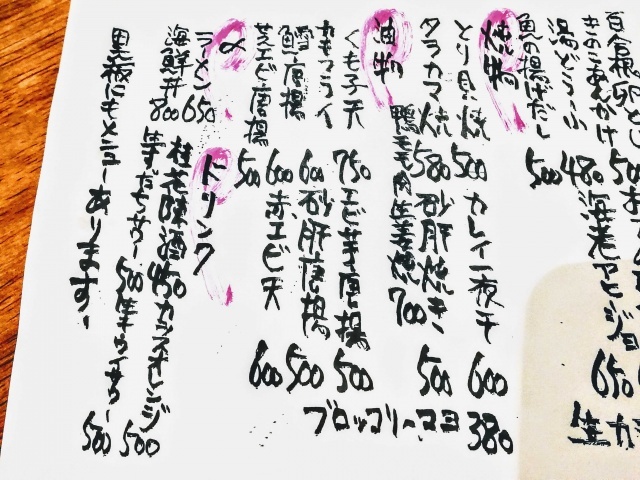 百合根卵とじ
きのこあんかけ 500
湯どうふ 480 海老アヒージョ 650
魚の揚げだし 500
焼物
とり貝焼 500 カレイ一夜干 600
タラカマ焼 580 砂肝焼き 500
鴨モモ肉生姜焼 700
油物
くも子天 750 エビ芋唐揚 500
カキフライ 600 砂肝唐揚 500
鱈唐揚 600 赤エビ天 600
芝エビ唐揚 500
ブロッコリーマヨ 380
〆
ラーメン 650
海鮮丼 800
ドリンク
桂花陳酒 450 カシスオレンジ 500
500 生キウイサワー 500
黒板にもメニューあります!